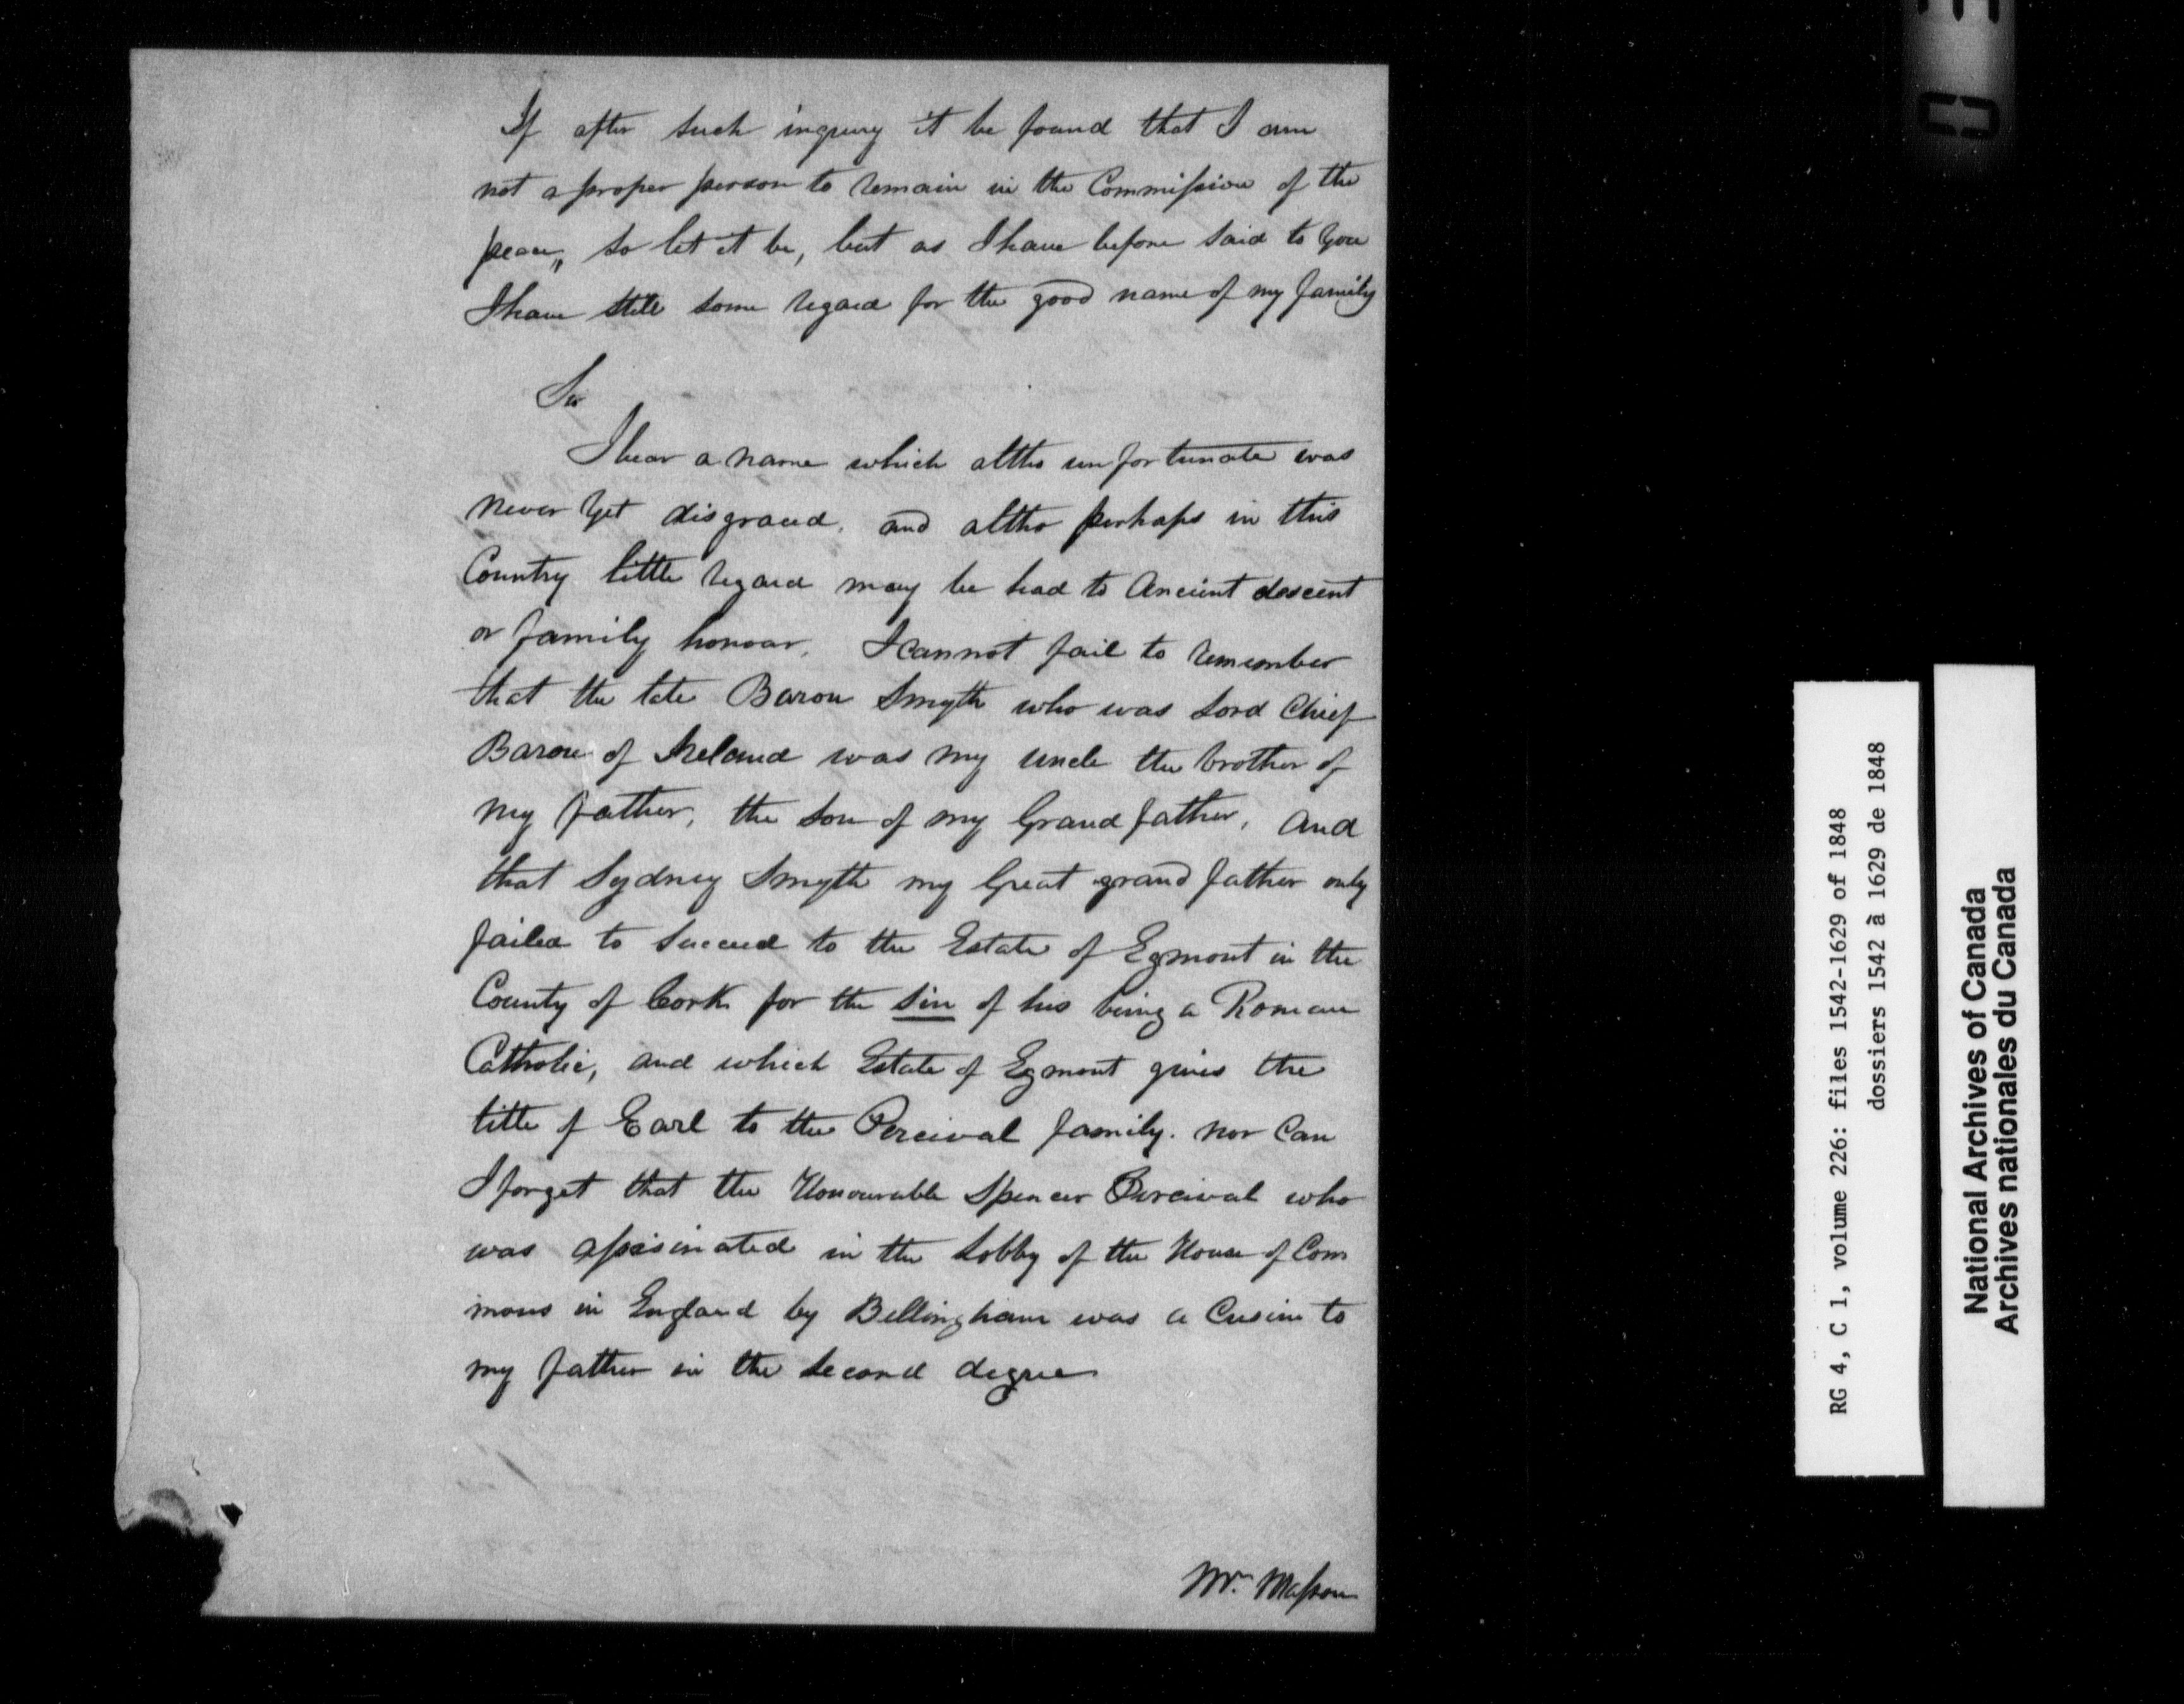 If after such inquiry it be found that I am
not a proper person to remain in the Commission of the
peace,, so let it be, but as I have before said to you
I have still some regard for the good name of my family
Sir
I bear a name which altho unfortunate was
never yet disgraced, and altho perhaps in this
Country little regard may be had to Ancient descent
or family honour, I cannot fail to remember
that the late Baron Smyth who was Lord Chief
Baron of Ireland was my uncle the brother of
my father, the son of my Grand father, and
that Sydney Smyth my Great grand father only
failed to succeed to the Estate of Egmont in the
County of Cork for the sin of his being a Roman
Catholic, and which Estate of Egmont gives the
title of Earl to the Percival family. nor can
I forget that the Honourable Spencer Percival who
was assasinated in the Lobby of the House of Com
mons in England by Bellingham was a Cusin to
my father in the second degree
Mr. Masson
RG 4, C 1, volume 226: files 1542-1629 of 1848
dossiers 1542 à 1629 de 1848
National Archives of Canada
Archives nationales du Canada